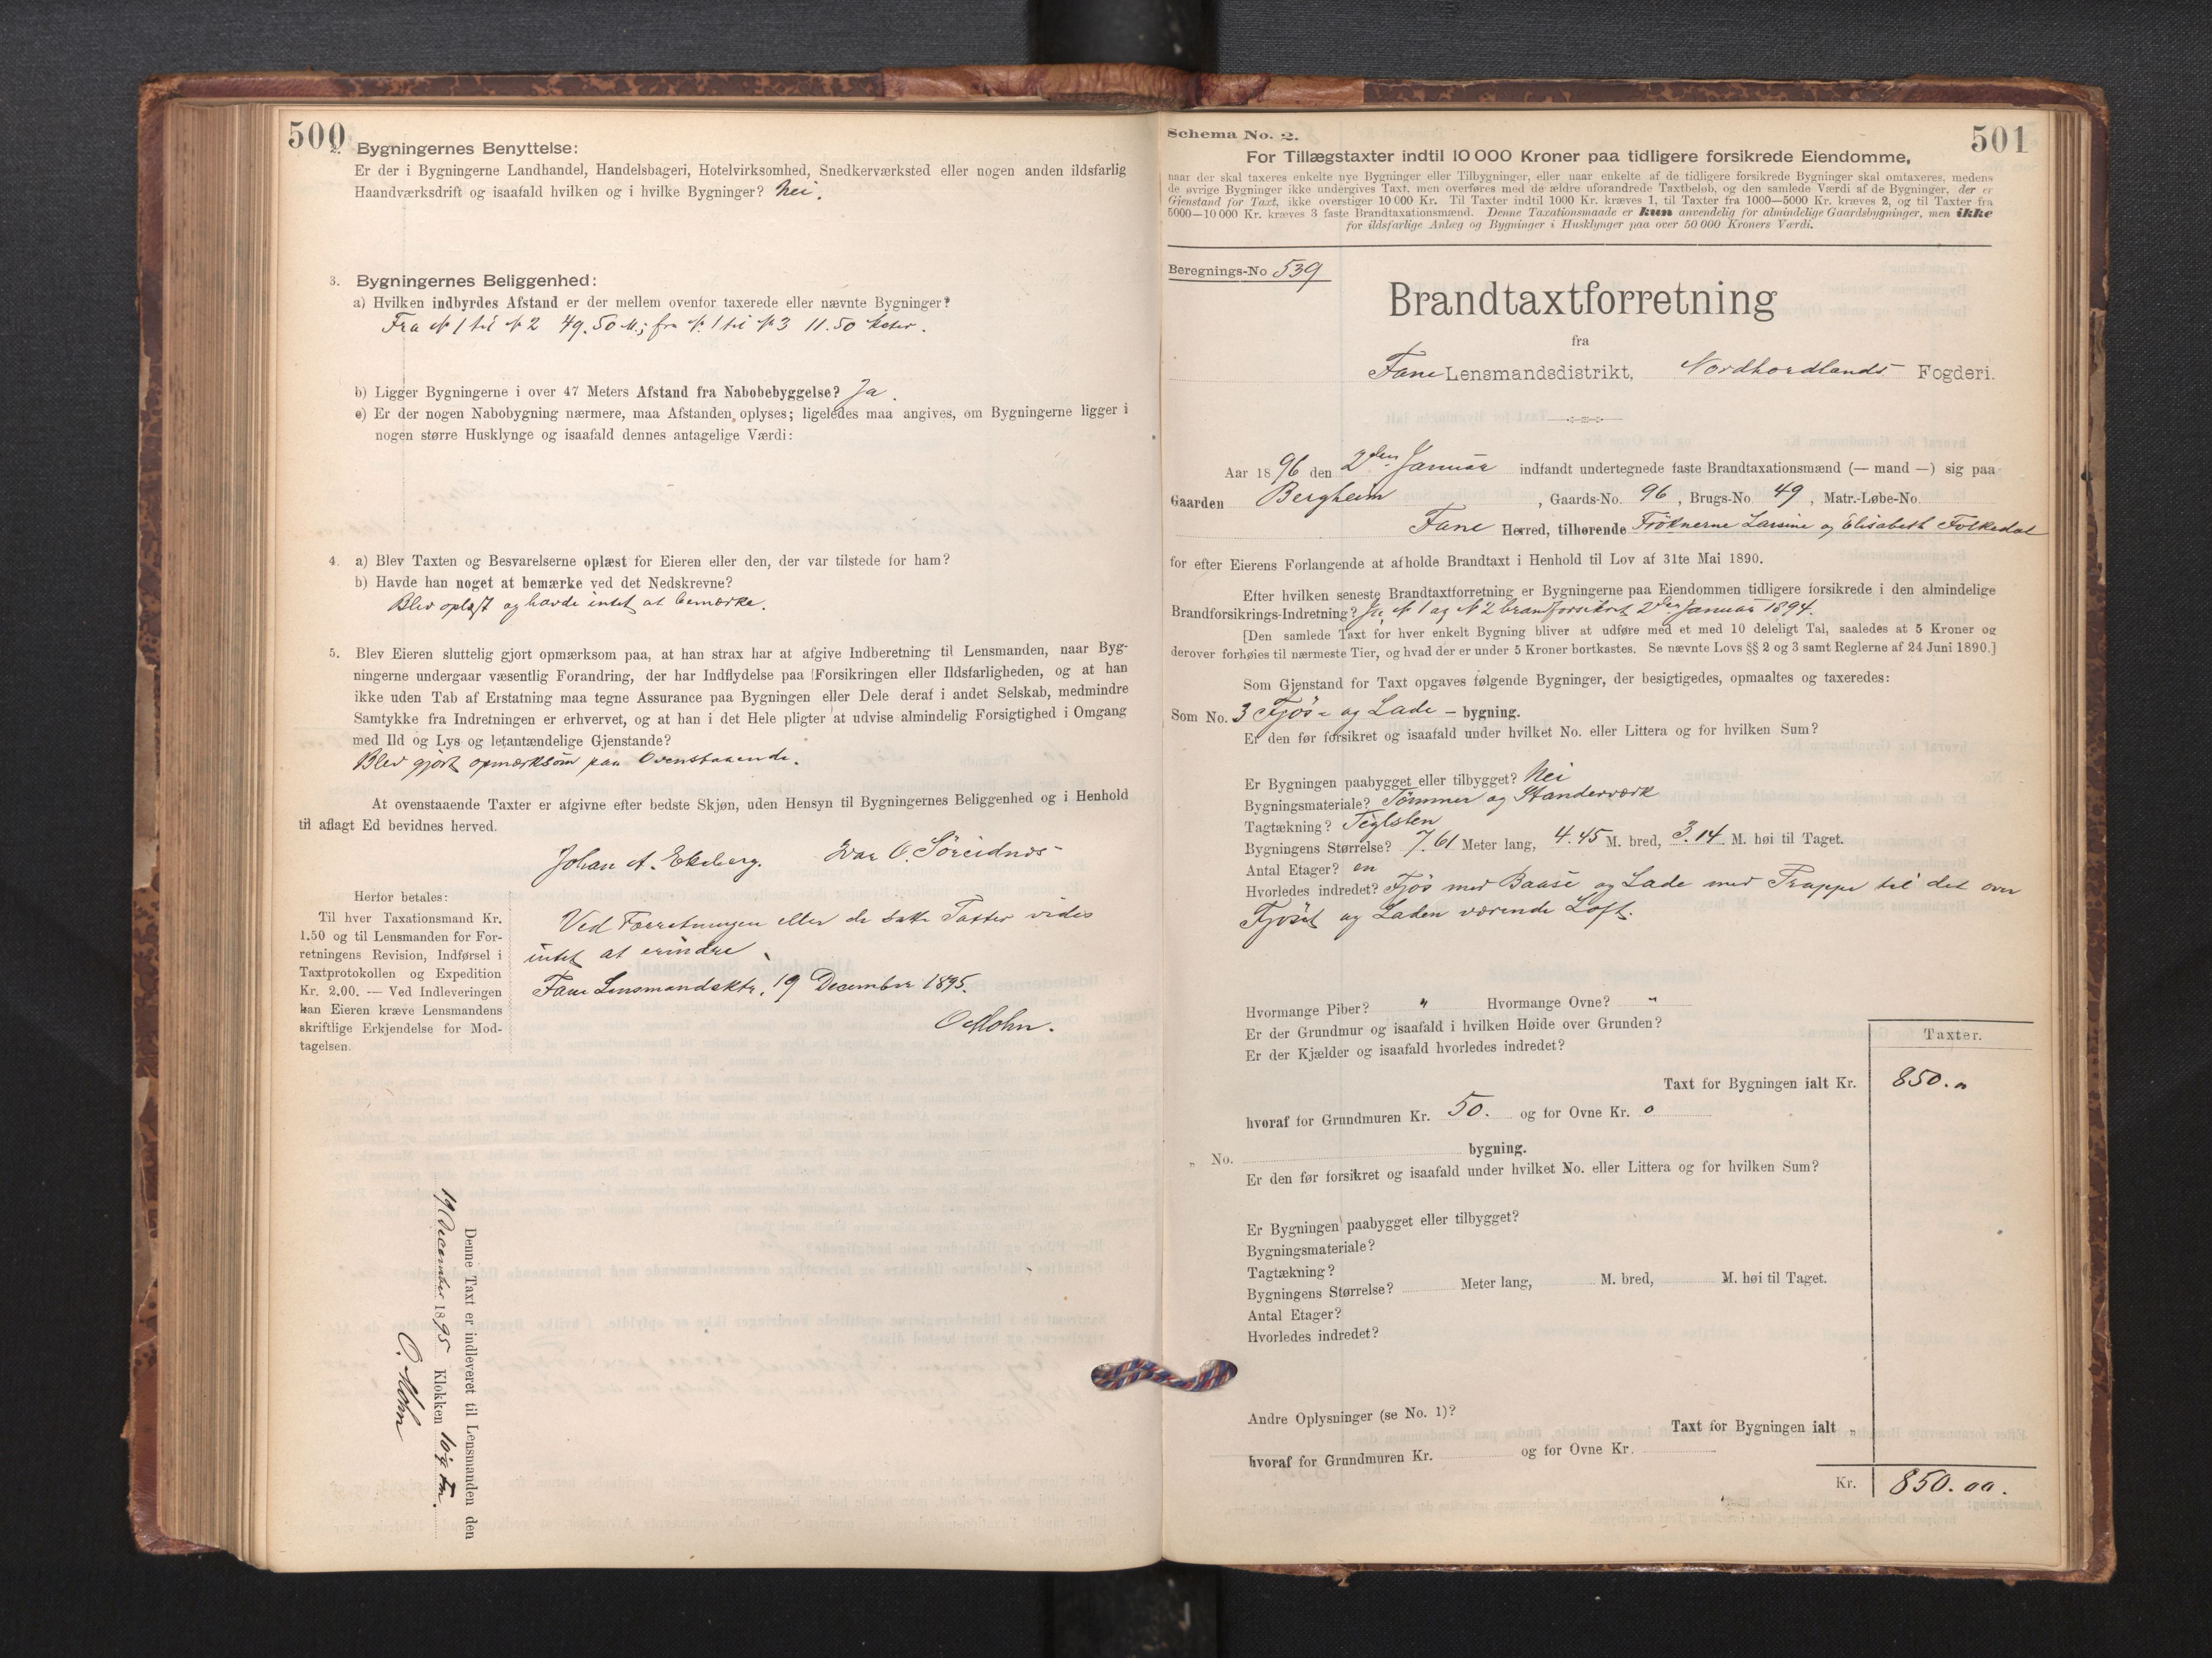 500
2. Bygningernes Benyttelse:
Er der i Bygningerne Landhandel, Handelsbageri, Hotelvirksomhed, Snedkerværksted eller nogen anden ildsfarlig
Haandværksdrift og isaafald hvilken og i hvilke Bygninger? Nei.
3. Bygningernes Beliggenhed:
a) Hvilken indbyrdes Afstand er der mellem ovenfor taxerede eller nævnte Bygninger?
Fra № 1 til № 2 49.50 M; fra № 1 til № 3 11.50 Meter.
b) Ligger Bygningerne i over 47 Meters Afstand fra Nabobebyggelse? Ja.
c) Er der nogen Nabobygning nærmere, maa Afstanden oplyses; ligeledes maa angives, om Bygningerne ligger i
nogen større Husklynge og isaafald dennes antagelige Værdi:
4. a) Blev Taxten og Besvarelserne oplæst for Eieren eller den, der var tilstede for ham?
b) Havde han noget at bemærke ved det Nedskrevne?
Blev oplæst og havde intet at bemærke.
5. Blev Eieren sluttelig gjort opmærksom paa, at han strax har at afgive Indberetning til Lensmanden, naar Byg-
ningerne undergaar væsentlig Forandring, der har Indflydelse paa Forsikringen eller Ildsfarligheden, og at han
ikke uden Tab af Erstatning maa tegne Assurance paa Bygningen eller Dele deraf i andet Selskab, medmindre
Samtykke fra Indretningen er erhvervet, og at han i det Hele pligter at udvise almindelig Forsigtighed i Omgang
med Ild og Lys og letantændelige Gjenstande?
Blev gjort opmærksom paa Ovenstaaende.
At ovenstaaende Taxter er afgivne efter bedste Skjøn, uden Hensyn til Bygningernes Beliggenhed og i Henhold
til aflagt Ed bevidnes herved.
Johan A. Ekeberg. Ivar O. Söreidnes
Herfor betales:
Til hver Taxationsmand Kr.
1.50 og til Lensmanden for For-
retningens Revision, Indførsel i
Taxtprotokollen og Expedition
Kr. 2.00. — Ved Indleveringen
kan Eieren kræve Lensmandens
skriftlige Erkjendelse for Mod-
tagelsen.
Ved Forretningen eller de satte Taxter vides
intet at erindre.
Fane Lensmandsktr. 19 December 1895.
O Mohn.
Denne Taxt er indleveret til Lensmanden den
19 December 1895 Klokken 10 fm.
O. Mohn
501
Schema No. 2.
For Tillægstaxter indtil 10 000 Kroner paa tidligere forsikrede Eiendomme,
naar der skal taxeres enkelte nye Bygninger eller Tilbygninger, eller naar enkelte af de tidligere forsikrede Bygninger skal omtaxeres, medens
de øvrige Bygninger ikke undergives Taxt, men overføres med de ældre uforandrede Taxtbeløb, og den samlede Værdi af de Bygninger, der er
Gjenstand for Taxt, ikke overstiger 10 000 Kr. Til Taxter indtil 1000 Kr. kræves 1, til Taxter fra 1000—5000 Kr. kræves 2, og til Taxter fra
5000—10 000 Kr. kræves 3 faste Brandtaxationsmænd. Denne Taxationsmaade er kun anvendelig for almindelige Gaardsbygninger, men ikke
for ildsfarlige Anlæg og Bygninger i Husklynger paa over 50 000 Kroners Værdi.
Beregnings-No 539
Brandtaxtforretning
fra
Fane Lensmandsdistrikt, Nordhordlands Fogderi.
Aar 1896 den 2den Januar indfandt undertegnede faste Brandtaxationsmænd (— mand —) sig paa
Gaarden Bergheim, Gaards-No. 96, Brugs-No. 49, Matr.-Løbe-No.
Fane Herred, tilhørende Frøknerne Larsine og Elisabeth Folkedal
for efter Eierens Forlangende at afholde Brandtaxt i Henhold til Lov af 31te Mai 1890.
Efter hvilken seneste Brandtaxtforretning er Bygningerne paa Eiendommen tidligere forsikrede i den almindelige
Brandforsikrings-Indretning? Ja, № 1 og № 2 brandforsikret 2den Januar 1894.
[Den samlede Taxt for hver enkelt Bygning bliver at udføre med et med 10 deleligt Tal, saaledes at 5 Kroner og
derover forhøies til nærmeste Tier, og hvad der er under 5 Kroner bortkastes. Se nævnte Lovs §§ 2 og 3 samt Reglerne af 24 Juni 1890.]
Som Gjenstand for Taxt opgaves følgende Bygninger, der besigtigedes, opmaaltes og taxeredes:
Som No. 3 Fjös- og Lade - bygning.
Er den før forsikret og isaafald under hvilket No. eller Littera og for hvilken Sum?
Er Bygningen paabygget eller tilbygget? Nei
Bygningsmateriale? Tömmer og Standerværk
Tagtækning? Teglsten
Bygningens Størrelse? 7.61 Meter lang, 4.45 M. bred, 3.14 M. høi til Taget.
Antal Etager? en
Hvorledes indredet? Fjös med Baase og Lade med Trappe til det over
Fjöset og Laden værende Loft.
Hvormange Piber? " Hvormange Ovne? "
Er der Grundmur og isaafald i hvilken Høide over Grunden?
Er der Kjælder og isaafald hvorledes indredet?
Taxter.
Taxt for Bygningen ialt Kr. 850.
hvoraf for Grundmuren Kr. 50. og for Ovne Kr. 0
„ No. bygning.
Er den før forsikret og isaafald under hvilket No. eller Littera og for hvilken Sum?
Er Bygningen paabygget eller tilbygget?
Bygningsmateriale?
Tagtækning?
Bygningens Størrelse? Meter lang, M. bred, M. høi til Taget.
Antal Etager?
Hvorledes indredet?
Andre Oplysninger (se No. 1)?
Taxt for Bygningen ialt „
hvoraf for Grundmuren Kr. og for Ovne Kr.
Kr. 850.00.